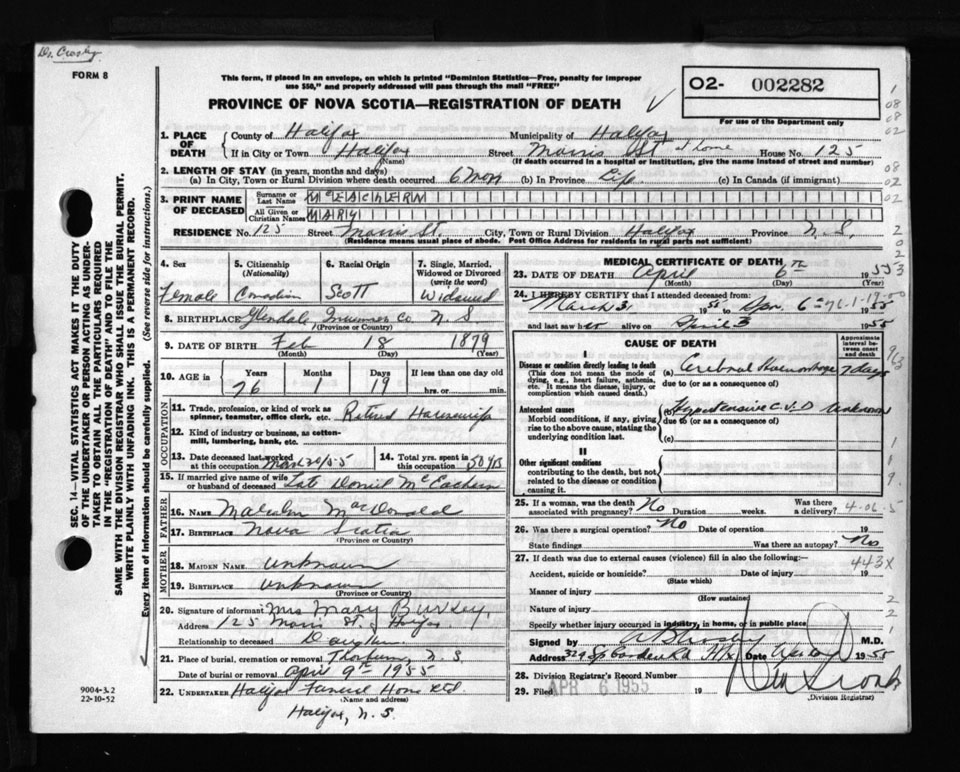 Dr. Crosby
FORM 8
This form, if placed in an envelope, on which is printed "Dominion Statistics—Free, penalty for improper
use $50," and properly addressed will pass through the mail "FREE"
PROVINCE OF NOVA SCOTIA—REGISTRATION OF DEATH
O2- 002282
For use of the Department only
1. PLACE OF DEATH County of Halifax Municipality of Halifax
If in City or Town Halifax (Name) Street Morris St at home House No. 125
(If death occurred in a hospital or institution, give the name instead of street and number)
2. LENGTH OF STAY (in years, months and days)
(a) In City, Town or Rural Division where death occurred 6 mos (b) In Province Life (c) In Canada (if immigrant)
3. PRINT NAME OF DECEASED Surname or Last Name McEACHERN
All Given or Christian Names MARY
RESIDENCE No. 125 Street Morris St. City, Town or Rural Division Halifax Province N.S.
(Residence means usual place of abode. Post Office Address for residents in rural parts not sufficient)
4. Sex Female
5. Citizenship (Nationality) Canadian
6. Racial Origin Scott
7. Single, Married, Widowed or Divorced (write the word) Widowed
8. BIRTHPLACE Glendale Inverness Co N.S
(Province or Country)
9. DATE OF BIRTH Feb 18 1879
(Month) (Day) (Year)
10. AGE in Years Months Days If less than one day old
76 1 19 hrs. or min.
OCCUPATION
11. Trade, profession, or kind of work as spinner, teamster, office clerk, etc. Retired Housewife
12. Kind of industry or business, as cotton-mill, lumbering, bank, etc.
13. Date deceased last worked at this occupation
14. Total yrs. spent in this occupation 50 yrs
15. If married give name of wife or husband of deceased Late Daniel McEachern
FATHER
16. NAME Malcolm MacDonald
17. BIRTHPLACE Nova Scotia
(Province or Country)
MOTHER
18. MAIDEN NAME Unknown
19. BIRTHPLACE Unknown
(Province or Country)
20. Signature of informant Mrs Mary Bursey
Address 125 Morris St. Halifax
Relationship to deceased Daughter
21. Place of burial, cremation or removal Thorburn, N.S.
Date of burial or removal April 9th 1955
22. UNDERTAKER Halifax Funeral Home Ltd
(Name and address)
Halifax, N.S.
MEDICAL CERTIFICATE OF DEATH
23. DATE OF DEATH April 6th 1955
(Month) (Day)
24. I HEREBY CERTIFY that I attended deceased from:
March 3 1955 to Apr. 6th 1955
and last saw her alive on April 3 1955
CAUSE OF DEATH
Approximate interval between onset and death
I
Disease or condition directly leading to death
(This does not mean the mode of dying, e.g., heart failure, asthenia, etc. It means the disease, injury, or complication which caused death.)
(a) Cerebral Haemorrhage 7 days
due to (or as a consequence of)
Antecedent causes
Morbid conditions, if any, giving rise to the above cause, stating the underlying condition last.
(b) Hypertensive C.V.D Unknown
due to (or as a consequence of)
(c)
II
Other significant conditions
contributing to the death, but not related to the disease or condition causing it.
25. If a woman, was the death associated with pregnancy? No Duration weeks. Was there a delivery?
4-06-5
26. Was there a surgical operation? No Date of operation 19
State findings Was there an autopsy? No
27. If death was due to external causes (violence) fill in also the following:—
443X
Accident, suicide or homicide? Date of injury 19
(State which)
Manner of injury
(How sustained)
Nature of injury
Specify whether injury occurred in industry, in home, or in public place
Signed by M.D.
Address 329 Sp Garden Rd Hfx Date 1955
28. Division Registrar's Record Number
29. Filed APR 6 1955 19
(Division Registrar)
SEC. 14—VITAL STATISTICS ACT MAKES IT THE DUTY
OF THE UNDERTAKER OR PERSON ACTING AS UNDER-
TAKER TO OBTAIN ALL THE PARTICULARS REQUIRED
IN THE "REGISTRATION OF DEATH" AND TO FILE THE
SAME WITH THE DIVISION REGISTRAR WHO SHALL ISSUE THE BURIAL PERMIT.
WRITE PLAINLY WITH UNFADING INK. THIS IS A PERMANENT RECORD.
Every item of information should be carefully supplied. (See reverse side for instructions.)
9004-3.2
22-10-52